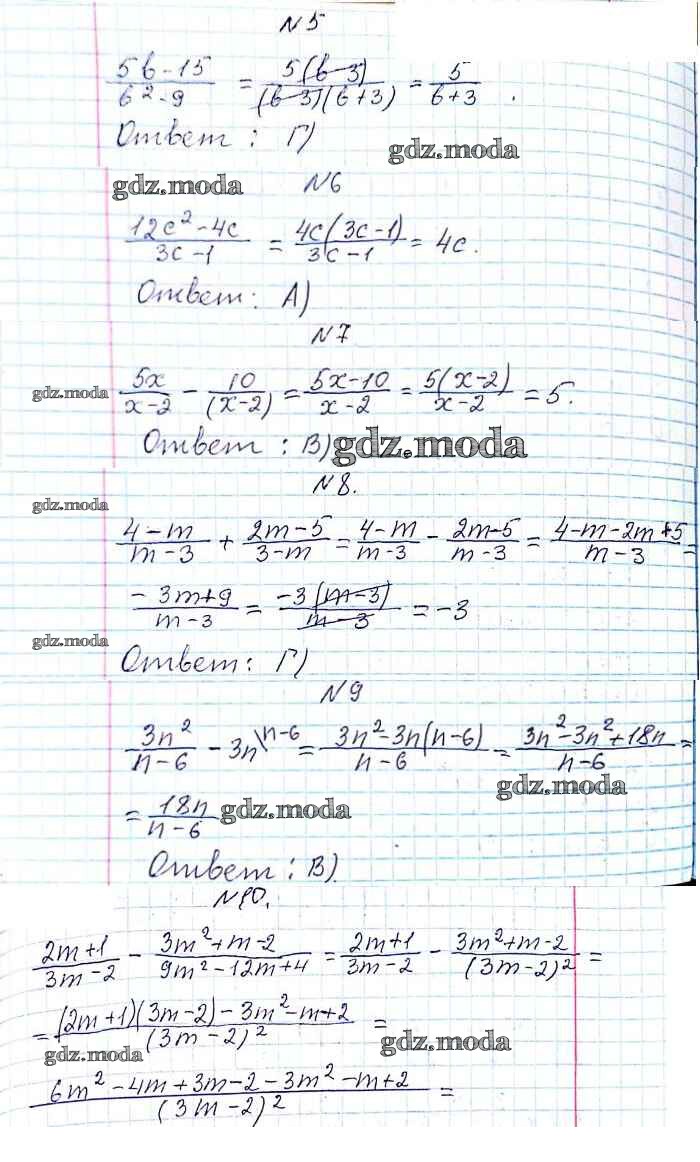 №5
(5b-15)/(b²-9) = 5(b-3)/((b-3)(b+3)) = 5/(b+3).
Ответ: Г)
gdz.moda
gdz.moda
№6
(12c²-4c)/(3c-1) = 4c(3c-1)/(3c-1) = 4c.
Ответ: А)
№7
gdz.moda
5x/(x-2) - 10/(x-2) = (5x-10)/(x-2) = 5(x-2)/(x-2) = 5.
Ответ: В)
gdz.moda
№8.
gdz.moda
(4-m)/(m-3) + (2m-5)/(3-m) = (4-m)/(m-3) - (2m-5)/(m-3) = (4-m-2m+5)/(m-3) =
(-3m+9)/(m-3) = -3(m-3)/(m-3) = -3
gdz.moda
Ответ: Г)
№9
3n²/(n-6) - 3n\n-6 = (3n²-3n(n-6))/(n-6) = (3n²-3n²+18n)/(n-6) =
gdz.moda
= 18n/(n-6)
gdz.moda
Ответ: В)
№10.
(2m+1)/(3m-2) - (3m²+m-2)/(9m²-12m+4) = (2m+1)/(3m-2) - (3m²+m-2)/(3m-2)² =
= ((2m+1)(3m-2)-3m²-m+2)/(3m-2)² =
gdz.moda
gdz.moda
(6m²-4m+3m-2-3m²-m+2)/(3m-2)² =